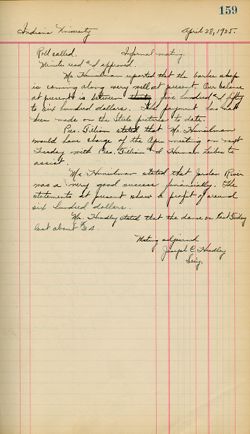 159
Indiana University April 28, 1925.
Roll called. Informal meeting
Minutes read and approved.
Mr. Hunselman reported that the barber shop
is coming along very well at present. Our balance
at present is between five hundred and fifty
to six hundred dollars. payment has
been made on the picture to date.
Pres. Gillian stated that Mr. Hunselman
would have charge of the Apex meeting on next
Tuesday with Pres. Gillian and to
assist.
Mr. Hunselman stated that Jordan River
was a very good success financially. The
statements at present show a profit of around
six hundred dollars.
Mr. Hundley stated that the dance on last Friday
lost about $
Meeting adjourned
Joseph C. Hundley
Secy.